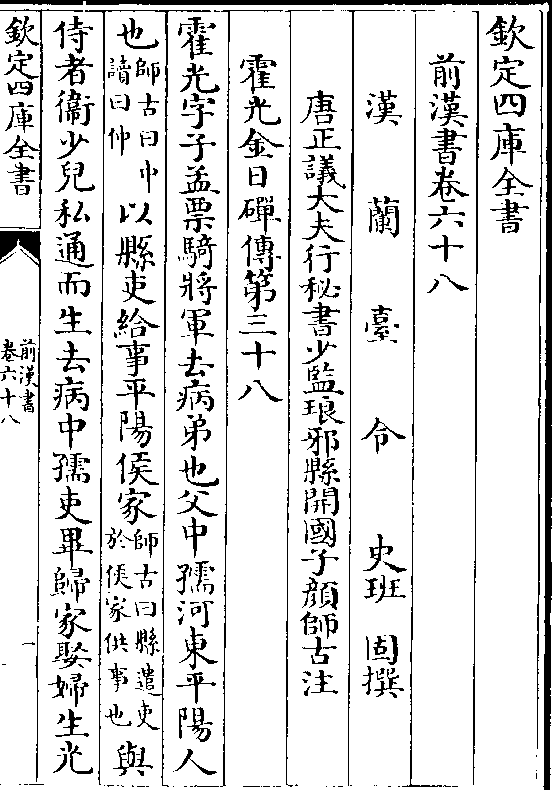 欽定四庫全書
前漢書卷六十八
漢蘭臺令史班固撰
唐正議大夫行秘書少監琅邪縣開國子顔師古注
霍光金日磾傳第三十八
霍光字子孟票騎將軍去病弟也父中孺河東平陽人
也師古曰中讀曰仲以縣吏給事平陽侯家師古曰縣遣吏於侯家供事也與
侍者衞少兒私通而生去病中孺吏畢歸家娶婦生光
欽定四庫全書
前漢書
卷六十八
一